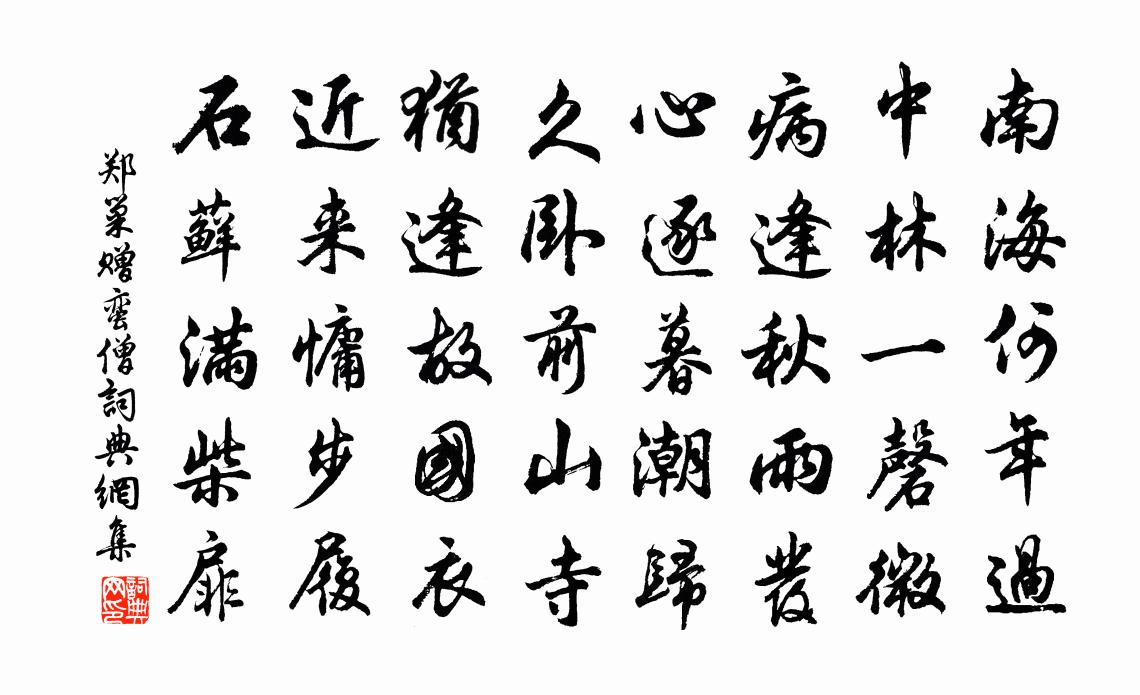 南海何年過
中林一磬微
病逢秋雨發
心逐暮潮歸
久卧前山寺
猶逢故國衣
近来慵步履
石蘚滿柴扉
郑巢赠蛮僧詞典網集
詞典網印